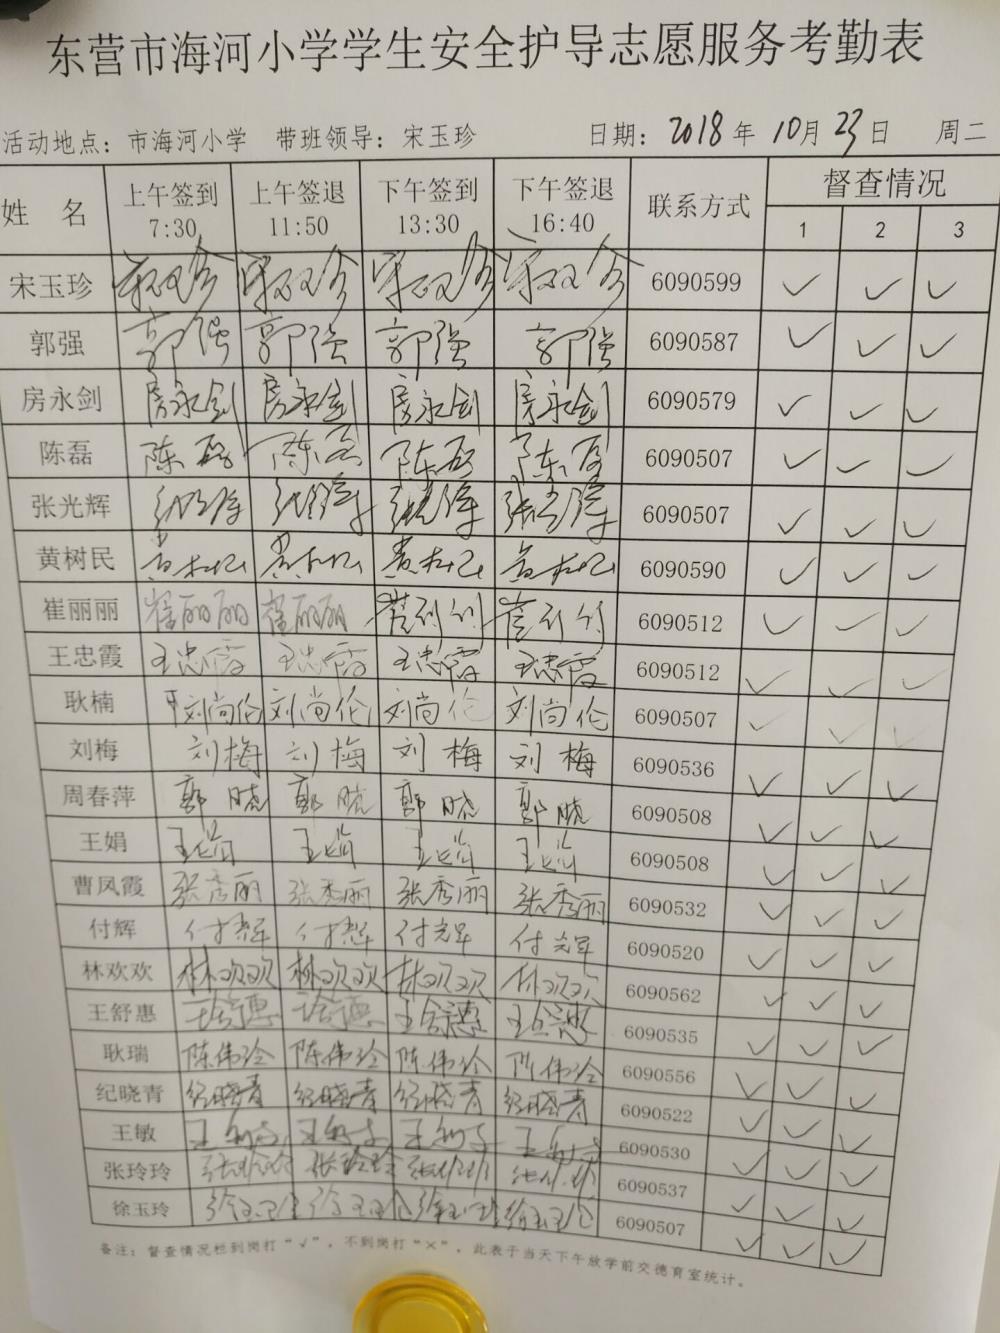 东营市海河小学学生安全护导志愿服务考勤表
活动地点：市海河小学 带班领导：宋玉珍 日期：2018年10月23日 周二
姓名 上午签到 7:30 上午签退 11:50 下午签到 13:30 下午签退 16:40 联系方式 督查情况 1 2 3
宋玉珍 宋玉珍 宋玉珍 宋玉珍 宋玉珍 6090599 ✓ ✓ ✓
郭强 郭强 郭强 郭强 郭强 6090587 ✓ ✓ ✓
房永剑 房永剑 房永剑 房永剑 房永剑 6090579 ✓ ✓ ✓
陈磊 陈磊 陈磊 陈磊 陈磊 6090507 ✓ ✓ ✓
张光辉 张光辉 张光辉 张光辉 张光辉 6090507 ✓ ✓ ✓
黄树民 黄树民 黄树民 黄树民 黄树民 6090590 ✓ ✓ ✓
崔丽丽 崔丽丽 崔丽丽 崔丽丽 崔丽丽 6090512 ✓ ✓ ✓
王忠霞 王忠霞 王忠霞 王忠霞 王忠霞 6090512 ✓ ✓ ✓
耿楠 刘尚伦 刘尚伦 刘尚伦 刘尚伦 6090507 ✓ ✓ ✓
刘梅 刘梅 刘梅 刘梅 刘梅 6090536 ✓ ✓ ✓
周春萍 郭晓 郭晓 郭晓 郭晓 6090508 ✓ ✓ ✓
王娟 王娟 王娟 王娟 王娟 6090508 ✓ ✓ ✓
曹凤霞 张秀丽 张秀丽 张秀丽 张秀丽 6090532 ✓ ✓ ✓
付辉 付辉 付辉 付辉 付辉 6090520 ✓ ✓ ✓
林欢欢 林欢欢 林欢欢 林欢欢 林欢欢 6090562 ✓ ✓ ✓
王舒惠 王舒惠 王舒惠 王舒惠 王舒惠 6090535 ✓ ✓ ✓
耿瑞 陈伟玲 陈伟玲 陈伟玲 陈伟玲 6090556 ✓ ✓ ✓
纪晓青 纪晓青 纪晓青 纪晓青 纪晓青 6090522 ✓ ✓ ✓
王敏 6090530 ✓ ✓ ✓
张玲玲 张玲玲 张玲玲 张玲玲 张玲玲 6090537 ✓ ✓ ✓
徐玉玲 徐玉玲 徐玉玲 徐玉玲 徐玉玲 6090507 ✓ ✓ ✓
备注：督查情况栏到岗打“√”，不到岗打“×”，此表于当天下午放学前交德育室统计。